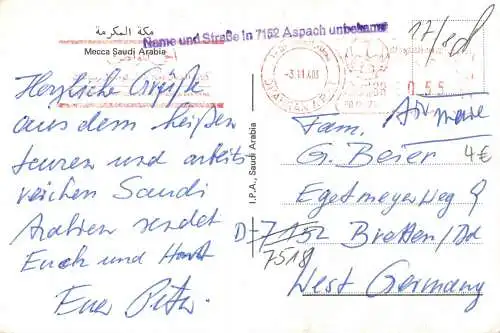 مكة المكرمة
Mecca Saudi Arabia
Name und Straße in 7152 Aspach unbekannt
17/8
Herzliche Grüße
aus dem heißen
teuren und arbeits-
reichen Saudi
Arabien sendet
Euch und Horst
Euer Peter
I.P.A., Saudi Arabia
DHAHRAN A.P.
-3.11.
055
Air mail
Fam.
G. Beier
4€
Egetmeyer Weg 9
D-7152 Bretten/Bd
7518
West Germany